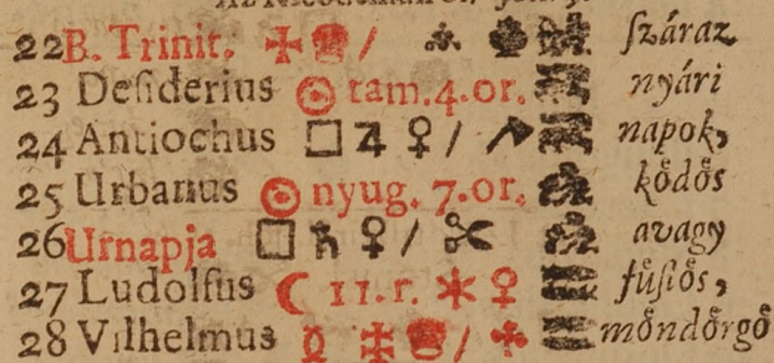 22 B. Trinit. ſzáraz
23 Deſiderius ☉ tam. 4. or. nyári
24 Antiochus □ ♃ ♀ / napok,
25 Urbanus ☉ nyug. 7. or. ködös
26 Urnapja □ ♄ ♀ / ✂ avagy
27 Ludolfus ☾ 11. r. ✶ ♀ füſtös,
28 Vilhelmus möndörgö